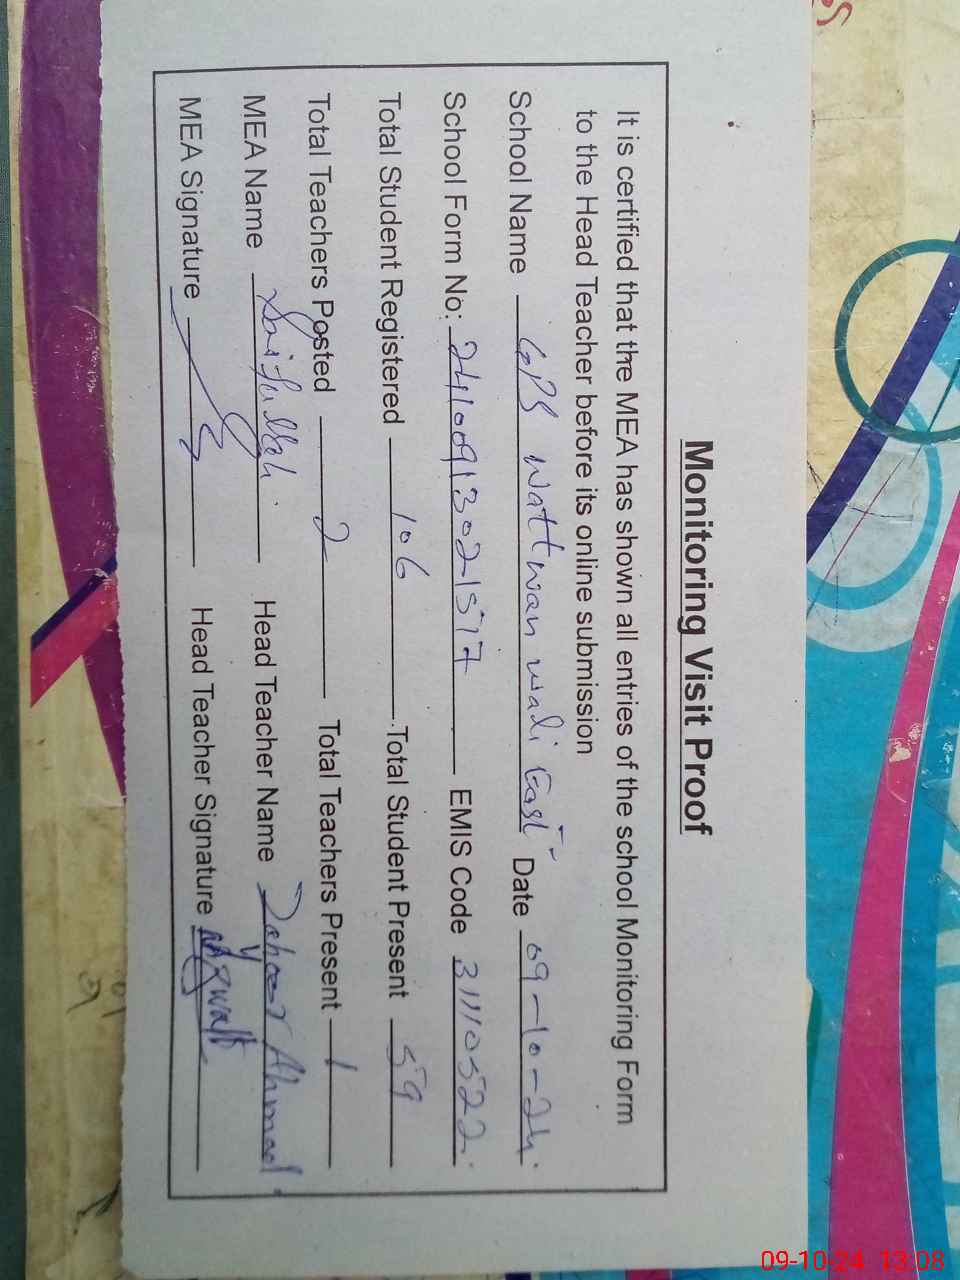 Monitoring Visit Proof
It is certified that the MEA has shown all entries of the school Monitoring Form
to the Head Teacher before its online submission
School Name GPS Wattwan wali East Date 09-10-24
School Form No: 24100913021517 EMIS Code 31110522
Total Student Registered 106 Total Student Present 59
Total Teachers Posted 2 Total Teachers Present 1
MEA Name Saifullah Head Teacher Name Zahoor Ahmad
MEA Signature Head Teacher Signature
09-10-24 13:08